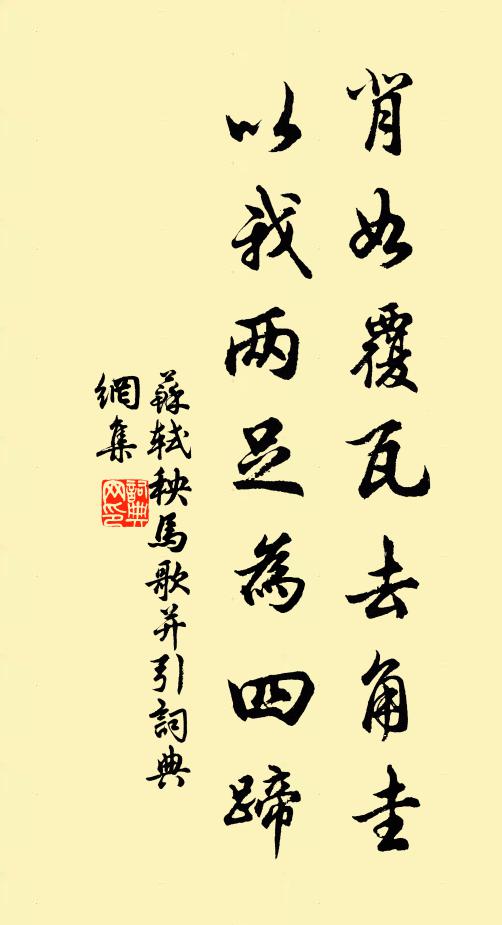 背如覆瓦去角圭
以我两足為四蹄
蘇軾秧馬歌并引詞典
網集
詞典
网印